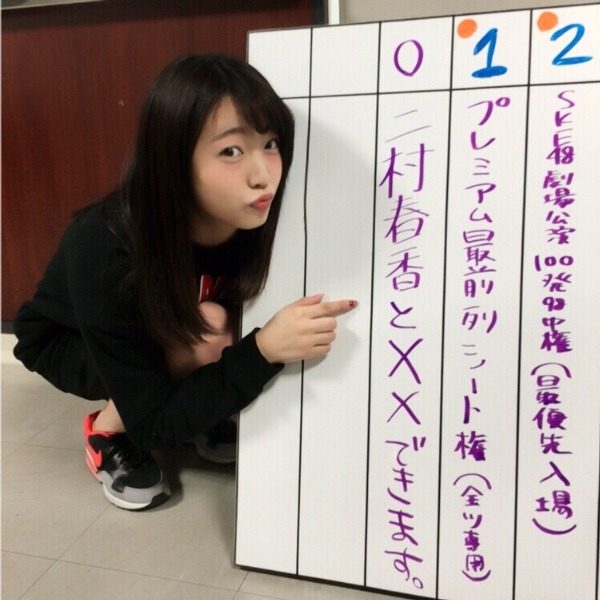 2
SKE48劇場公演100発98中権(最優先入場)
1
プレミアム最前列シート権(全ツ専用)
0
二村春香とXXできます。